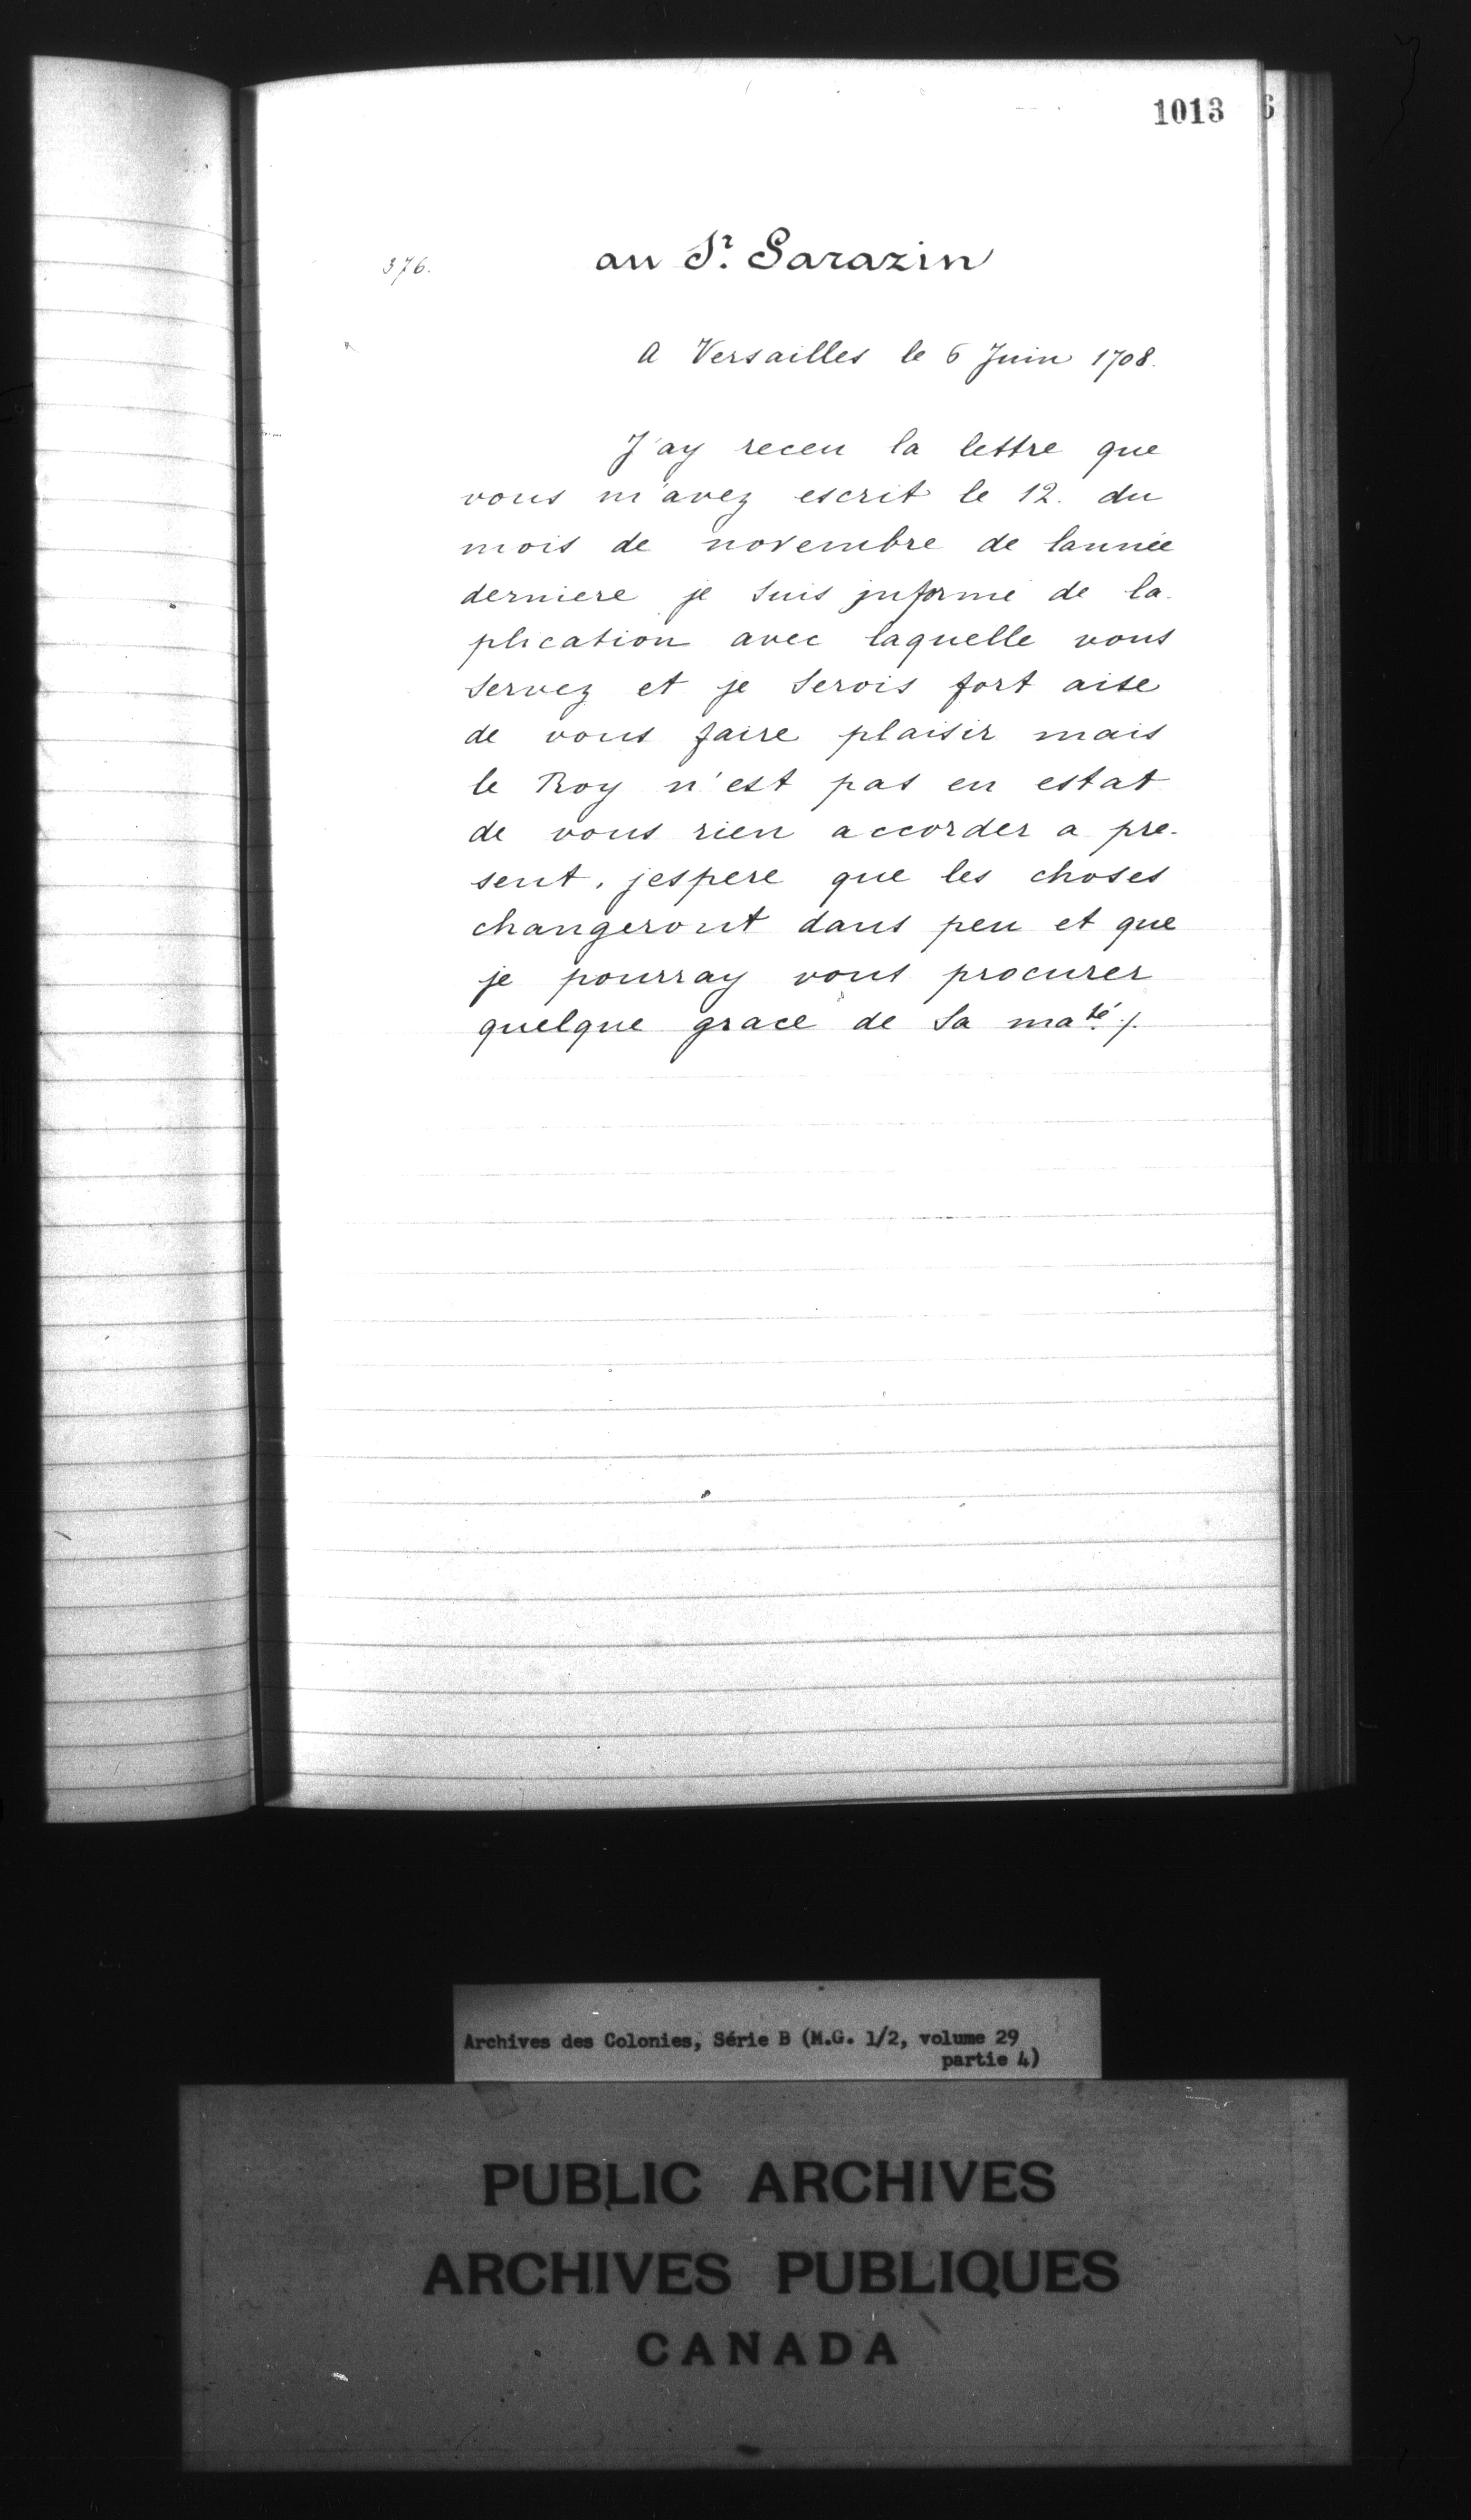 1013
6
376.
au Sr. Sarazin
A Versailles le 6 Juin 1708.
J'ay receu la lettre que
vous m'avez escrit le 12. du
mois de novembre de lannée
derniere je suis jnformé de la
plication avec laquelle vous
servez et je serois fort aise
de vous faire plaisir mais
le Roy n'est pas en estat
de vous rien accorder a pre-
sent, jespere que les choses
changeront dans peu et que
je pourray vous procurer
quelque grace de sa maté ./.
Archives des Colonies, Série B (M.G. 1/2, volume 29
partie 4)
PUBLIC ARCHIVES
ARCHIVES PUBLIQUES
CANADA